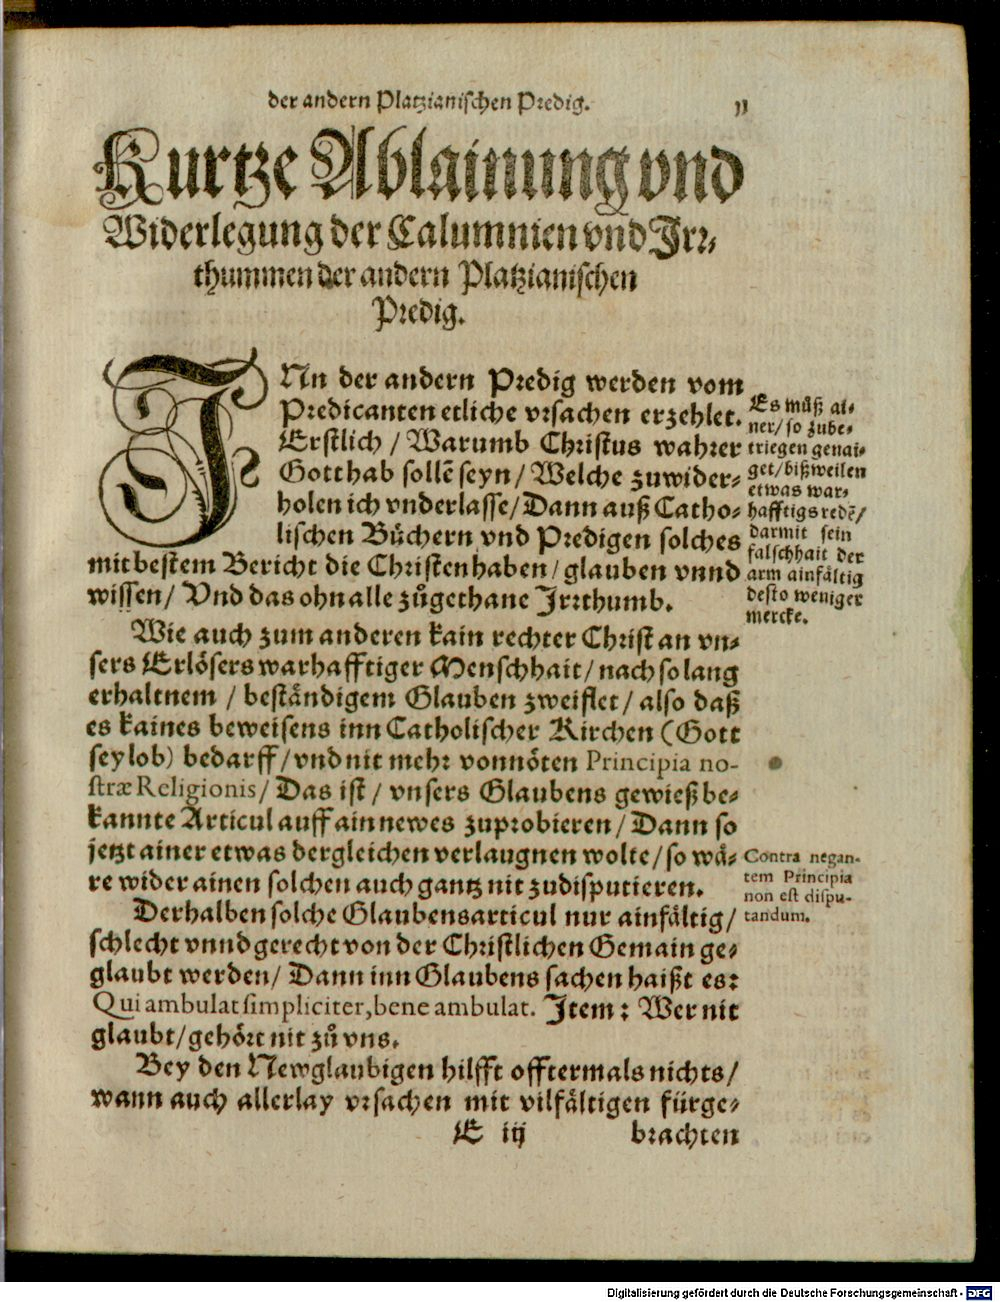 der andern Platzianischen Predig. 11
Kurtze Ablainung vnd
Widerlegung der Calumnien vnd Irr-
thummen der andern Platzianischen
Predig.
INn der andern Predig werden vom
Predicanten etliche vrsachen erzehlet.
Erstlich / Warumb Christus wahrer
Gott hab sollẽ seyn / Welche zuwider-
holen ich vnderlasse / Dann auß Catho-
lischen Bůchern vnd Predigen solches
mit bestem Bericht die Christen haben / glauben vnnd
wissen / Vnd das ohn alle zůgethane Irrthumb.
Es můß ai-
ner / so zube-
triegen genai-
get / bißweilen
etwas war-
hafftigs redẽ /
darmit sein
falschhait der
arm ainfåltig
desto weniger
mercke.
Wie auch zum anderen kain rechter Christ an vn-
sers Erlösers warhafftiger Menschhait / nach so lang
erhaltnem / beståndigem Glauben zweiflet / also daß
es kaines beweisens inn Catholischer Kirchen (Gott
sey lob) bedarff / vnd nit mehr vonnöten Principia no-
stræ Religionis / Das ist / vnsers Glaubens gewieß be-
kannte Articul auff ain newes zuprobieren / Dann so
jetzt ainer etwas dergleichen verlaugnen wolte / so wå-
re wider ainen solchen auch gantz nit zudisputieren.
Contra negan-
tem Principia
non est dispu-
tandum.
Derhalben solche Glaubensarticul nur ainfåltig /
schlecht vnnd gerecht von der Christlichen Gemain ge-
glaubt werden / Dann inn Glaubens sachen haißt es:
Qui ambulat simpliciter, bene ambulat. Item: Wer nit
glaubt / gehört nit zů vns.
Bey den Newglaubigen hilfft offtermals nichts /
wann auch allerlay vrsachen mit vilfåltigen fürge-
E iij brachten
Digitalisierung gefördert durch die Deutsche Forschungsgemeinschaft - DFG